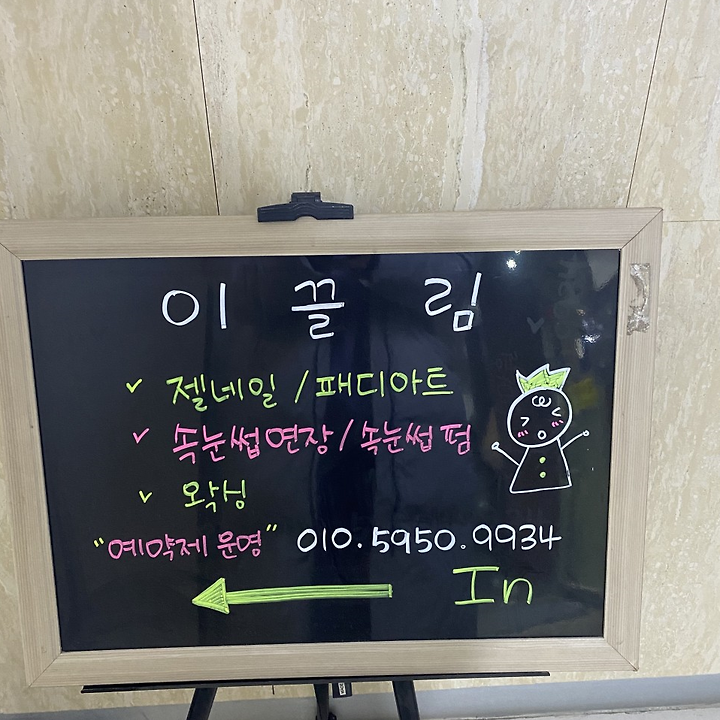 이 끌 림
✓ 젤네일 / 패디아트
✓ 속눈썹연장 / 속눈썹 펌
✓ 왁싱
"예약제 운영" 010.5950.9934
In